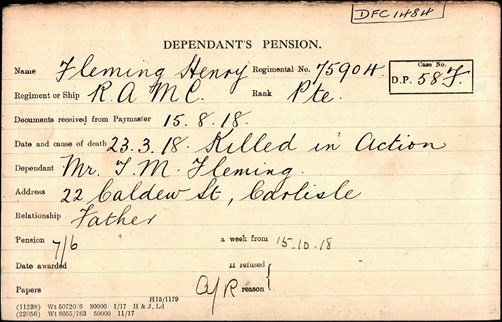 DFC 1484
DEPENDANT'S PENSION.
Name Fleming Henry Regimental No. 75904. Case No. D.P. 58F.
Regiment or Ship R.A.M.C. Rank Pte.
Documents received from Paymaster 15.8.18.
Date and cause of death 23.3.18. Killed in Action
Dependant Mr. T. M. Fleming.
Address 22 Caldew St, Carlisle
Relationship Father
Pension 7/6 a week from 15.10.18
Date awarded If refused
Papers reason
H15/1179
(11238) Wt 50720/6 30000 1/17 H & J, Ld
(22056) Wt 8055/763 50000 11/17